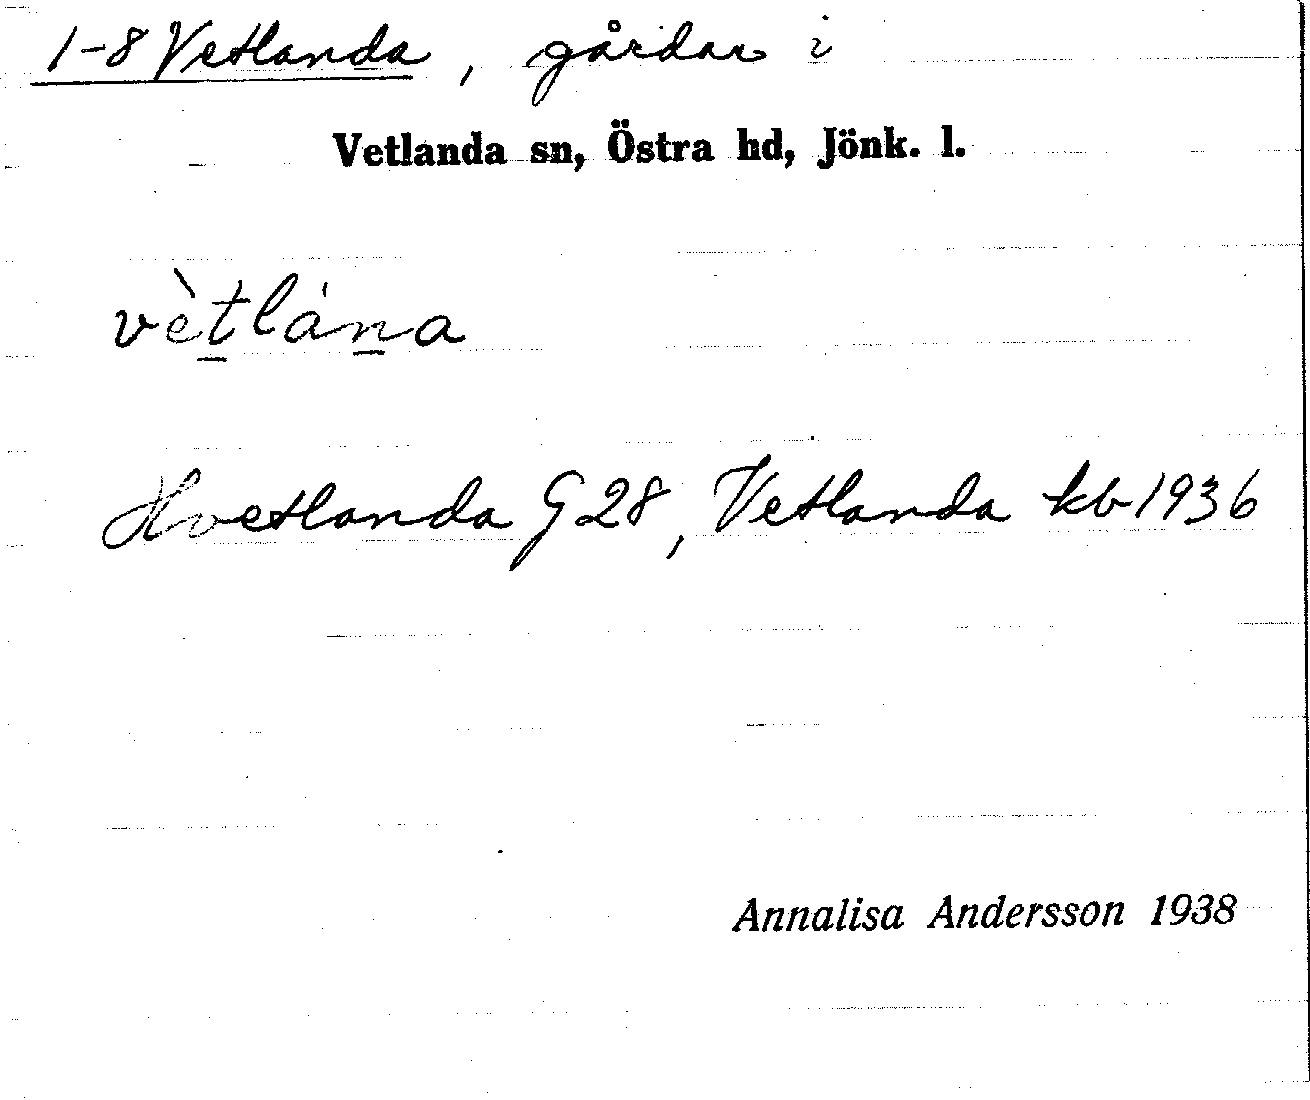 1-8 Vetlanda, gårdar i
Vetlanda sn, Östra hd, Jönk. l.
vèṯláṉa
Hvetlanda G 28, Vetlanda kb 1936
Annalisa Andersson 1938